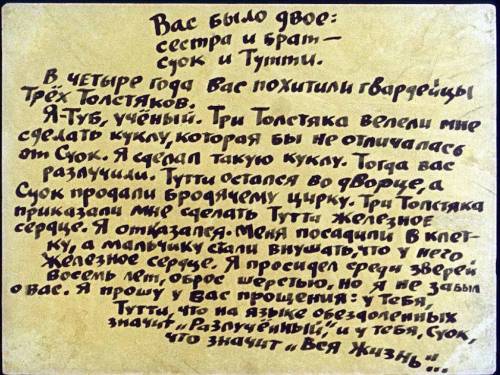 Вас было двое:
сестра и брат—
Суок и Тутти.
В четыре года вас похитили гвардейцы
Трёх Толстяков.
Я-Туб, учёный. Три Толстяка велели мне
сделать куклу, которая бы не отличалась
от Суок. Я сделал такую куклу. Тогда вас
разлучили. Тутти остался во дворце, а
Суок продали бродячему цирку. Три Толстяка
приказали мне сделать Тутти железное
сердце. Я отказался. Меня посадили в клет-
ку, а мальчику стали внушать, что у него
железное сердце. Я просидел среди зверей
восемь лет, оброс шерстью, но я не забыл
о вас. Я прошу у вас прощения: у тебя,
Тутти, что на языке обездоленных
значит „Разлучённый“, и у тебя, Суок,
что значит „Вся жизнь“...